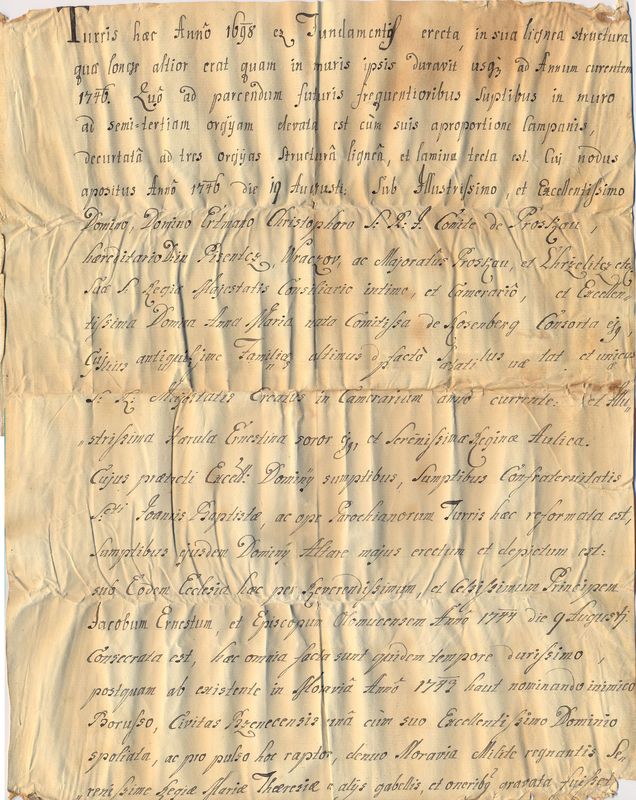 Turris hæc Annô 1698 ex Fundamentis erecta, in sua lignea structura
quæ longe altior erat quam in muris ipsis duravit usq3 ad Annum curentem
1746. Quô ad parcendum futuris frequentioribus suptibus in muro
ad semi-tertiam orgÿam elevata est cùm suis aproportione Campanis,
decurtatâ ad tres orgÿas structurâ ligneâ, et lamina tecta est. Cuj nodus
apositus Annô 1746 die 19 Augusti: Sub Illustrissimo, et Excellentissimo
Domino, Domino Erdmano Christophoro S: R: I: Comite de Proskau,
hæreditario Dnin Bisentez, Wraczov, ac Majoratus Proskau, et Chrzelitez etc
Sæ S Regiæ Majestatis Consiliario intimo, et Camerariô, et Excellen-
tissima Domina Anna Maria nata Comitissa de Rosenberg Consorta ejg
antiquissimæ Familiæ ultimus et unicus
S: R: Majestatis Creatus in Camerarium anno currente: et Illu-
strissima Karula Ernestina soror ejg, et Serenissimæ Reginæ Aulica.
Cujus præfecti Excell: Dominÿ sumptibus, Sumptibus Confraternitatis
S:ti Joannis Baptistæ, ac ope Parochianorum Turris hæc reformata est,
Sumptibus ejusdem Dominÿ Altare majus erectum et depictum est:
sub Eodem Ecclesia hæc per Reverendissimum, et Celsissimum Principem
Jacobum Ernestum, et Episcopum Olomucensem Annô 1744 die 9 Augusti
Consecrata est, hæc omnia facta sunt quidem tempore durissimo,
postquam ab existente in Moraviâ Annô 1743 haut nominando inimico
Borusso, Civitas Bzenecensis unâ cùm suo Excellentissimo Dominio
spoliata, ac pro pulso hoc raptor, denuo Moravia Milite regnantis Se-
renissimæ Regiæ Mariæ Theresiæ alÿs gabellis, et oneribg gravata fuisset